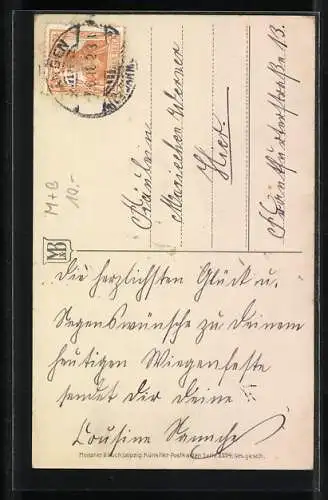 Die herzlichsten Glück u.
Segenswünsche zu Deinem
heutigen Wiegenfeste
sendet Dir Deine
Cousine Sannche
Fräulein
Mariechen Werner
Hier.
Frankfurterstraße 13.
M+B
10.-
MB
Meissner & Buch, Leipzig. Künstler-Postkarten Serie Ges. gesch.